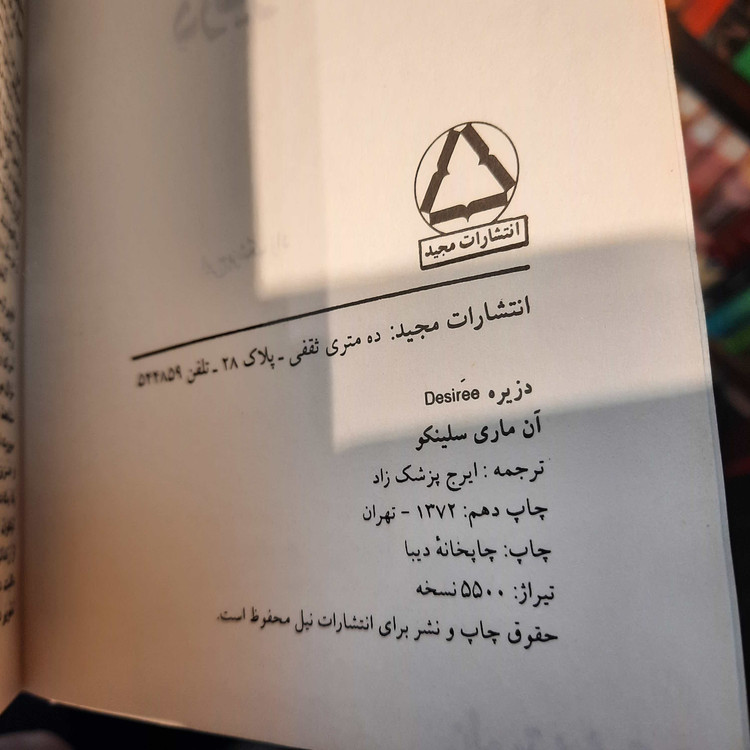 انتشارات مجید
انتشارات مجید: ده متری ثقفی ـ پلاک ۲۸ ـ تلفن ۵۴۴۸۵۹
دزیره Desirée
آن ماری سلینکو
ترجمه : ایرج پزشک زاد
چاپ دهم: ۱۳۷۲ - تهران
چاپ: چاپخانهٔ دیبا
تیراژ: ۵۵۰۰ نسخه
حقوق چاپ و نشر برای انتشارات نیل محفوظ است.